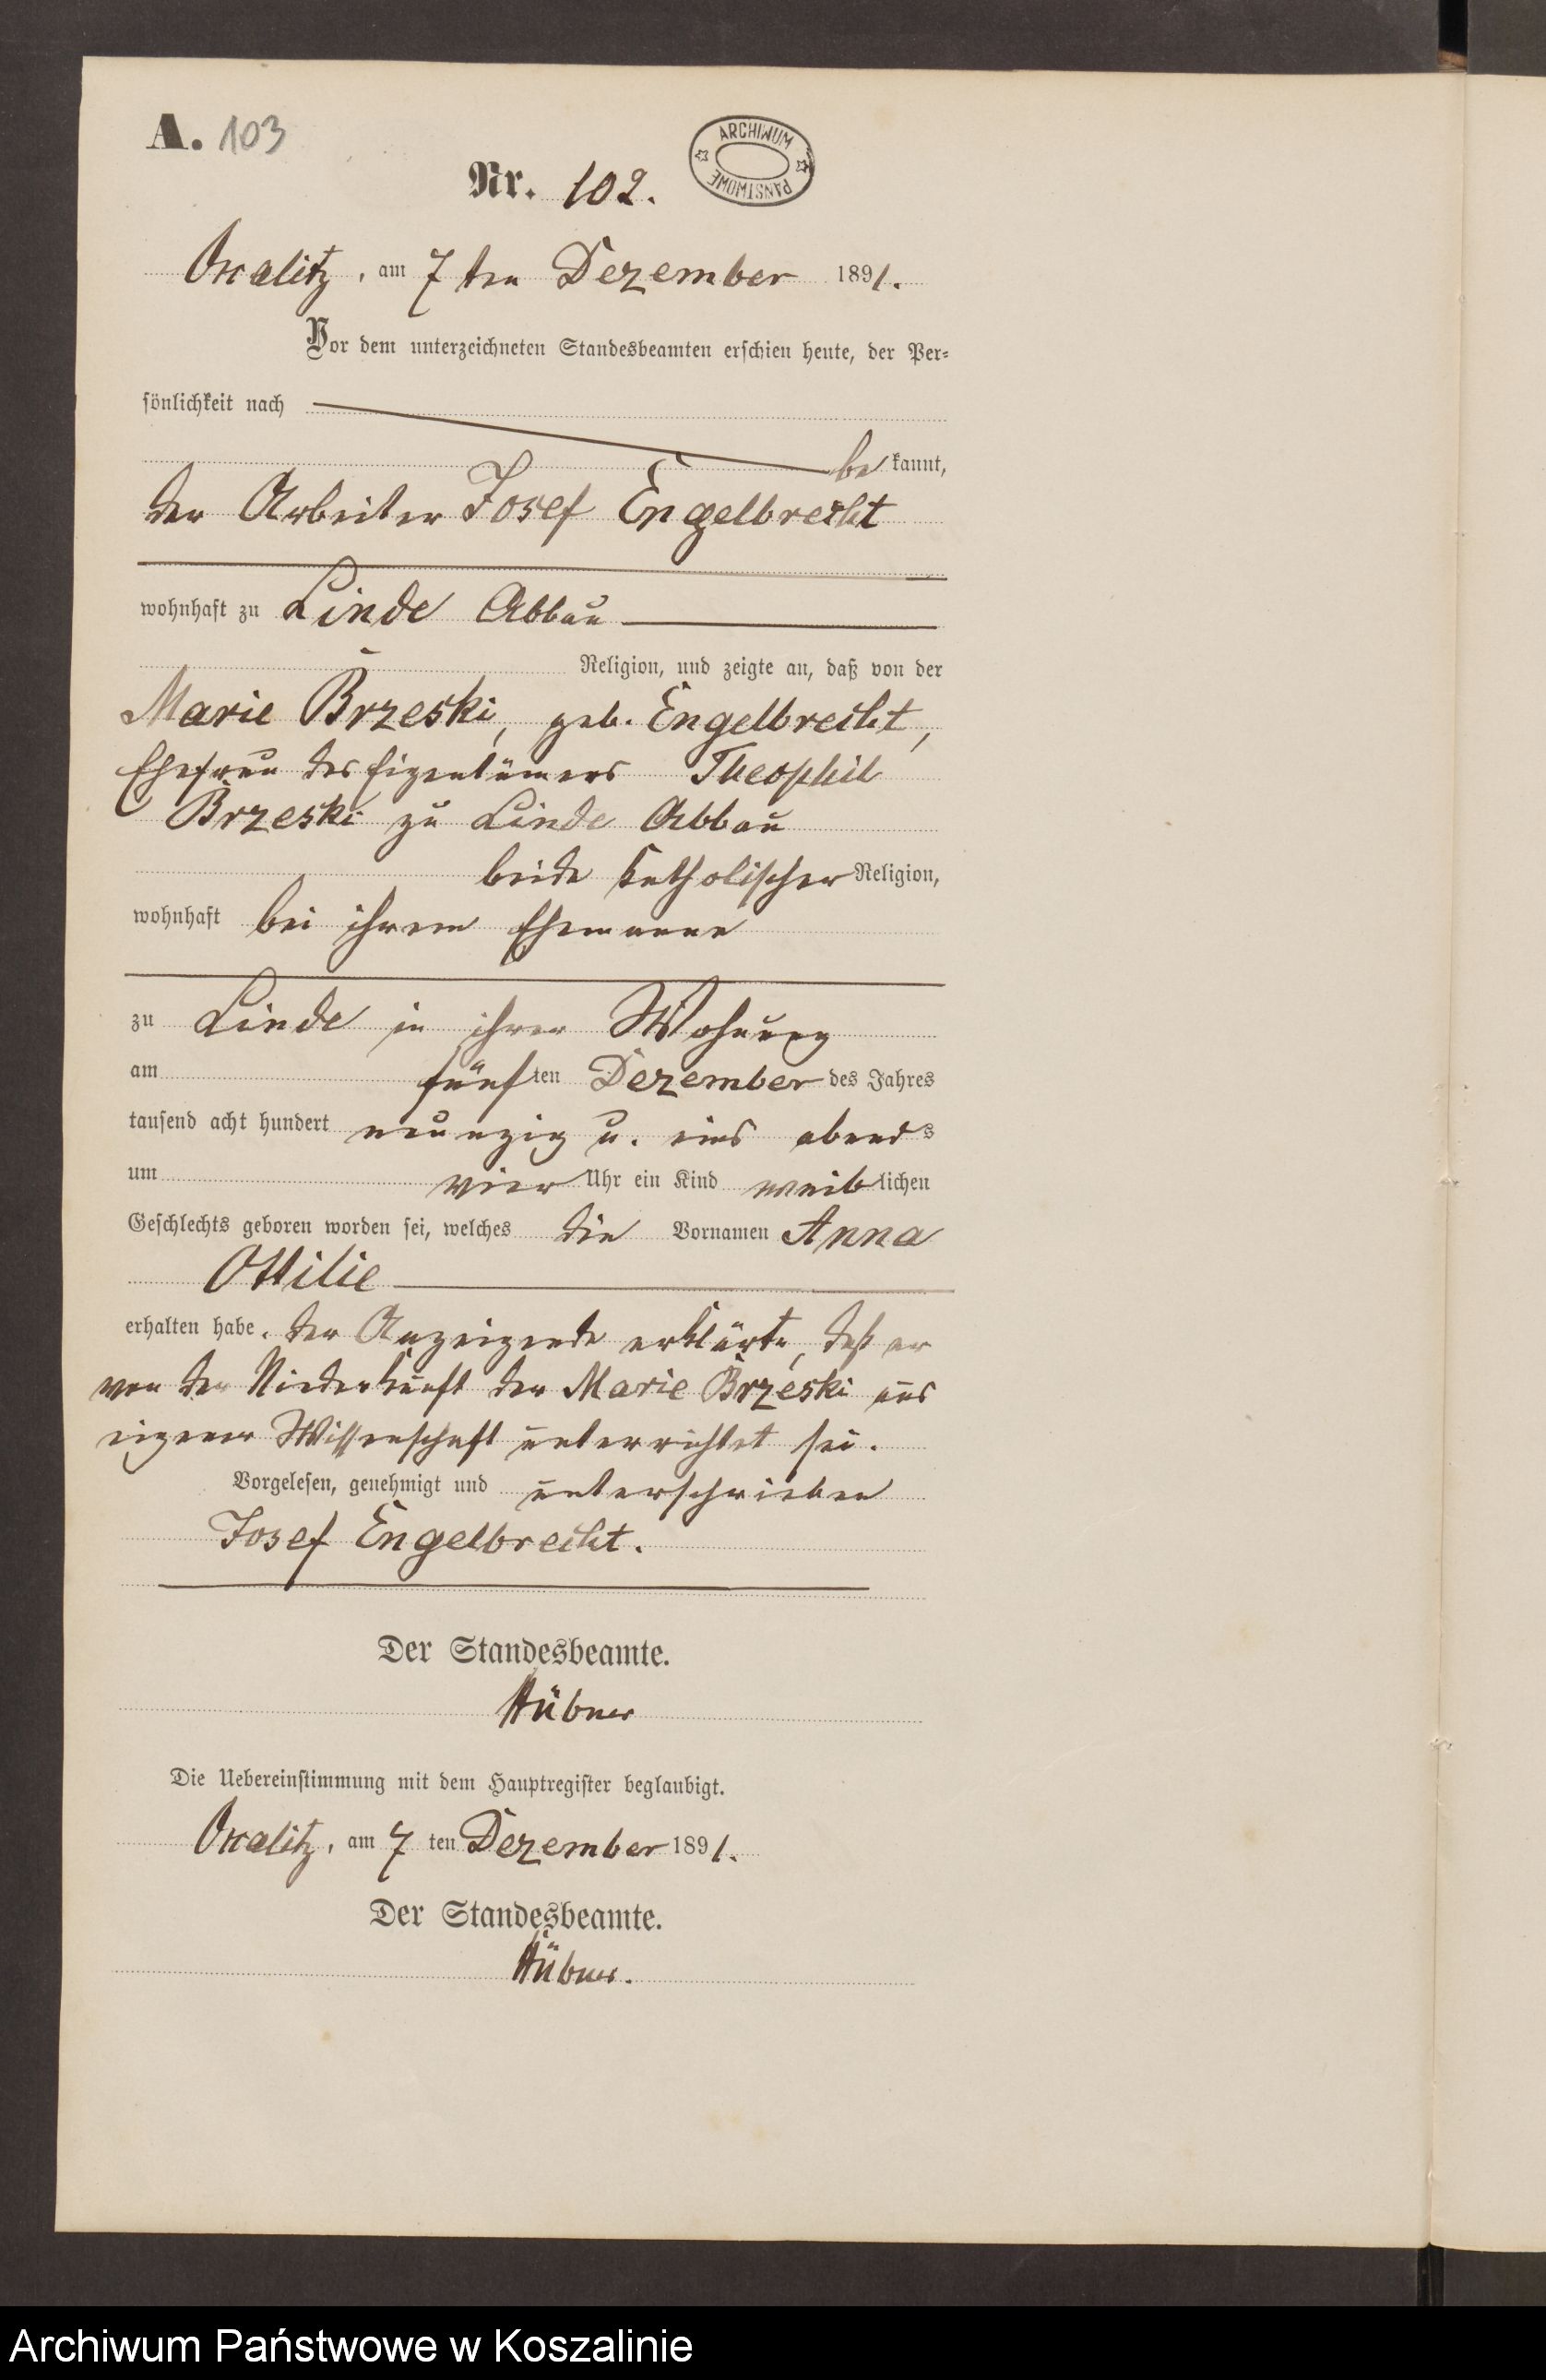 A. 103
Nr. 102.
ARCHIWUM PAŃSTWOWE
Oskalitz, am 7ten Dezember 1891.
Vor dem unterzeichneten Standesbeamten erschien heute, der Per-
sönlichkeit nach
bekannt,
der Arbeiter Josef Engelbrecht
wohnhaft zu Linde Abbau
Religion, und zeigte an, daß von der
Marie Brzeski, geb. Engelbrecht,
Ehefrau des Eigentümers Theophil
Brzeski zu Linde Abbau
beide katholischer Religion,
wohnhaft bei ihrem Ehemanne
zu Linde in ihrer Wohnung
am fünften Dezember des Jahres
tausend acht hundert neunzig u. eins abends
um vier Uhr ein Kind weiblichen
Geschlechts geboren worden sei, welches die Vornamen Anna
Ottilie
erhalten habe. Der Anzeigende erklärte, daß er
von der Niederkunft der Marie Brzeski aus
eigener Wissenschaft unterrichtet sei.
Vorgelesen, genehmigt und unterschrieben
Josef Engelbrecht.
Der Standesbeamte.
Hübner
Die Uebereinstimmung mit dem Hauptregister beglaubigt.
Oskalitz, am 7ten Dezember 1891.
Der Standesbeamte.
Hübner.
Archiwum Państwowe w Koszalinie